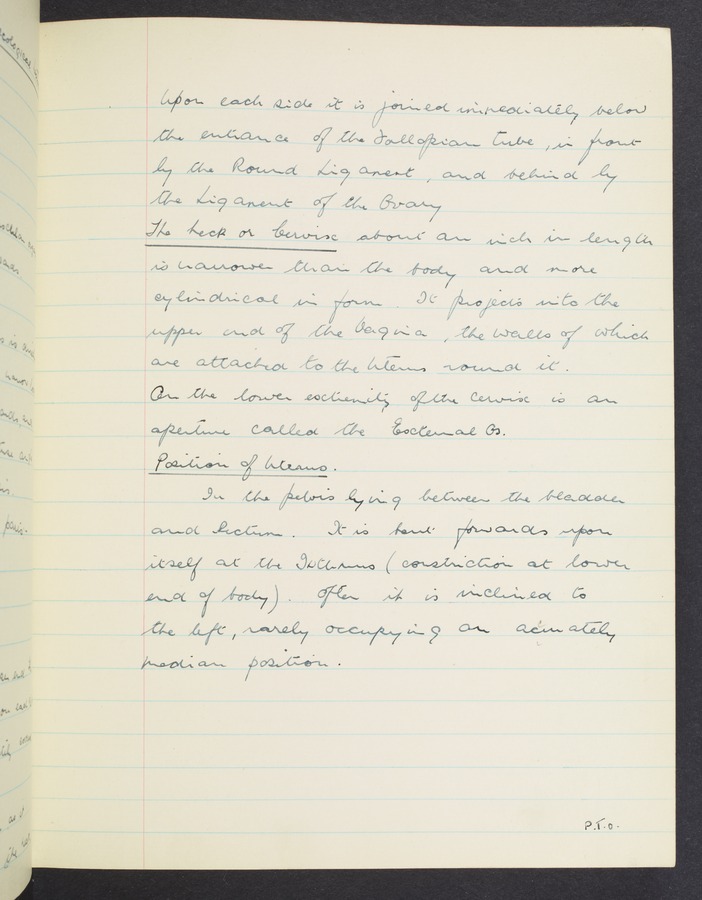 Upon each side it is joined immediately below
the entrance of the Fallopian tube, in front
by the Round Ligament, and behind by
the Ligament of the Ovary
The Neck or Cervix about an inch in length
is narrower than the body and more
cylindrical in form. It projects into the
upper end of the Vagina, the walls of which
are attached to the Uterus round it.
On the lower extremity of the cervix is an
aperture called the External Os.
Position of Uterus.
In the pelvis lying between the bladder
and Rectum. It is bent forwards upon
itself at the Isthmus (constriction at lower
end of body). Often it is inclined to
the left, rarely occupying an acurately
median position.
P.T.O.